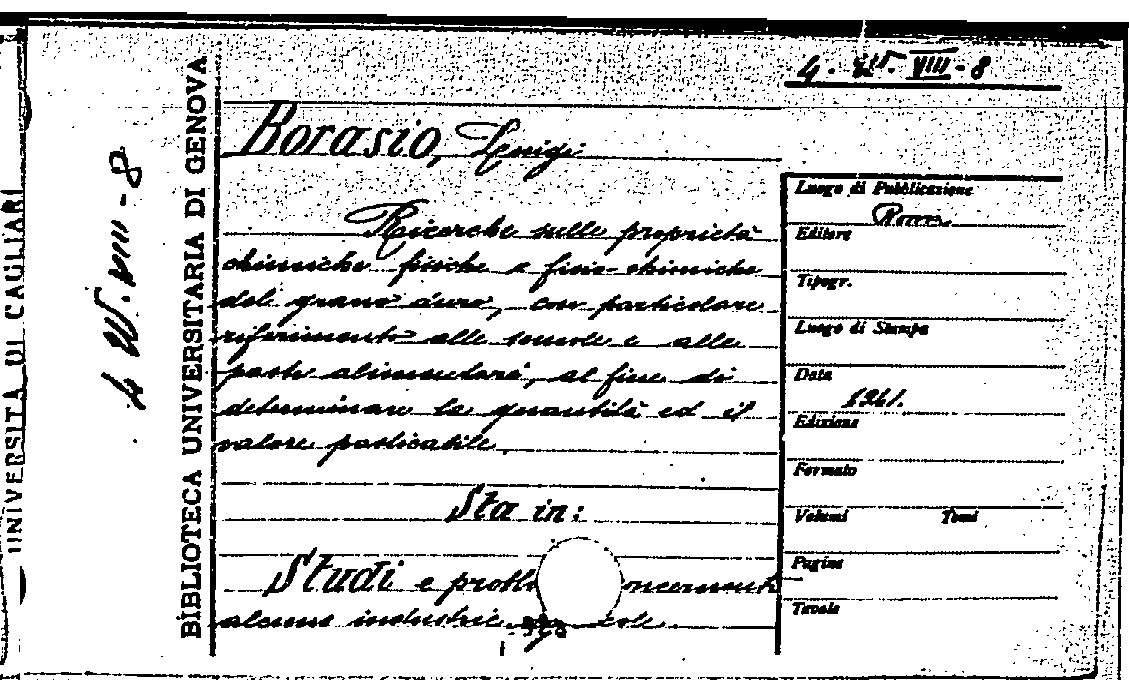 4. W. VIII - 8
4 W. VIII - 8
UNIVERSITÀ DI CAGLIARI
BIBLIOTECA UNIVERSITARIA DI GENOVA
Borasio, Luigi
Ricerche sulle proprietà
chimiche fisiche e fisio-chimiche
del grano duro, con particolare
riferimento alle semole e alle
paste alimentari, al fine di
determinare la quantità ed il
valore pastificabile.
Sta in:
Studi e probl oncernenti
alcune industrie cole.
Luogo di Pubblicazione
Roma
Editore
Tipogr.
Luogo di Stampa
Data
1941.
Edizione
Formato
Volumi Tomi
Pagine
Tavole